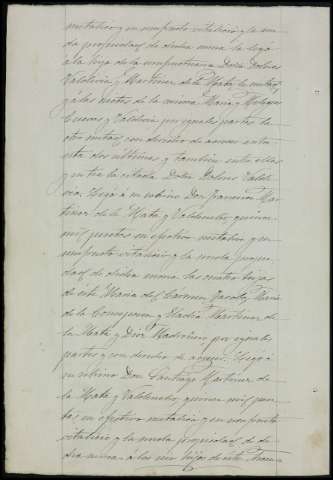 metálico y en usufructo vitalicio y la nu-
da propiedad de dicha suma la legó
a la hija de la usufructuaria Doña Dolores
Valdivia y Martinez de la Mata, la mitad,
y á las nietas de la misma María y Dolores
Cuevas y Valdivia por iguales partes la
otra mitad con derecho de acrecer entre
esta dos últimas y tambien entre ellas
y entre la citada Doña Dolores Valdi-
via. Legó á su sobrino Don Francisco Mar-
tinez de la Mata y Valdenebro, quince
mil pesetas en efectivo metálico y en
usufructo vitalicio y la nuda propie-
dad de dicha suma las cuatro hijas
de éste María del Cármen, María
de la Consuegra y Eladia Martinez de
la Mata y Diez Madroñero, por iguales
partes y con derecho de acrecer. Legó á
su sobrino Don Santiago Martinez de
la Mata y Valdenebro, quince mil pese-
tas en efectivo metálico y en usufructo
vitalicio y la nuda propiedad de di-
cha suma á los hijos de éste